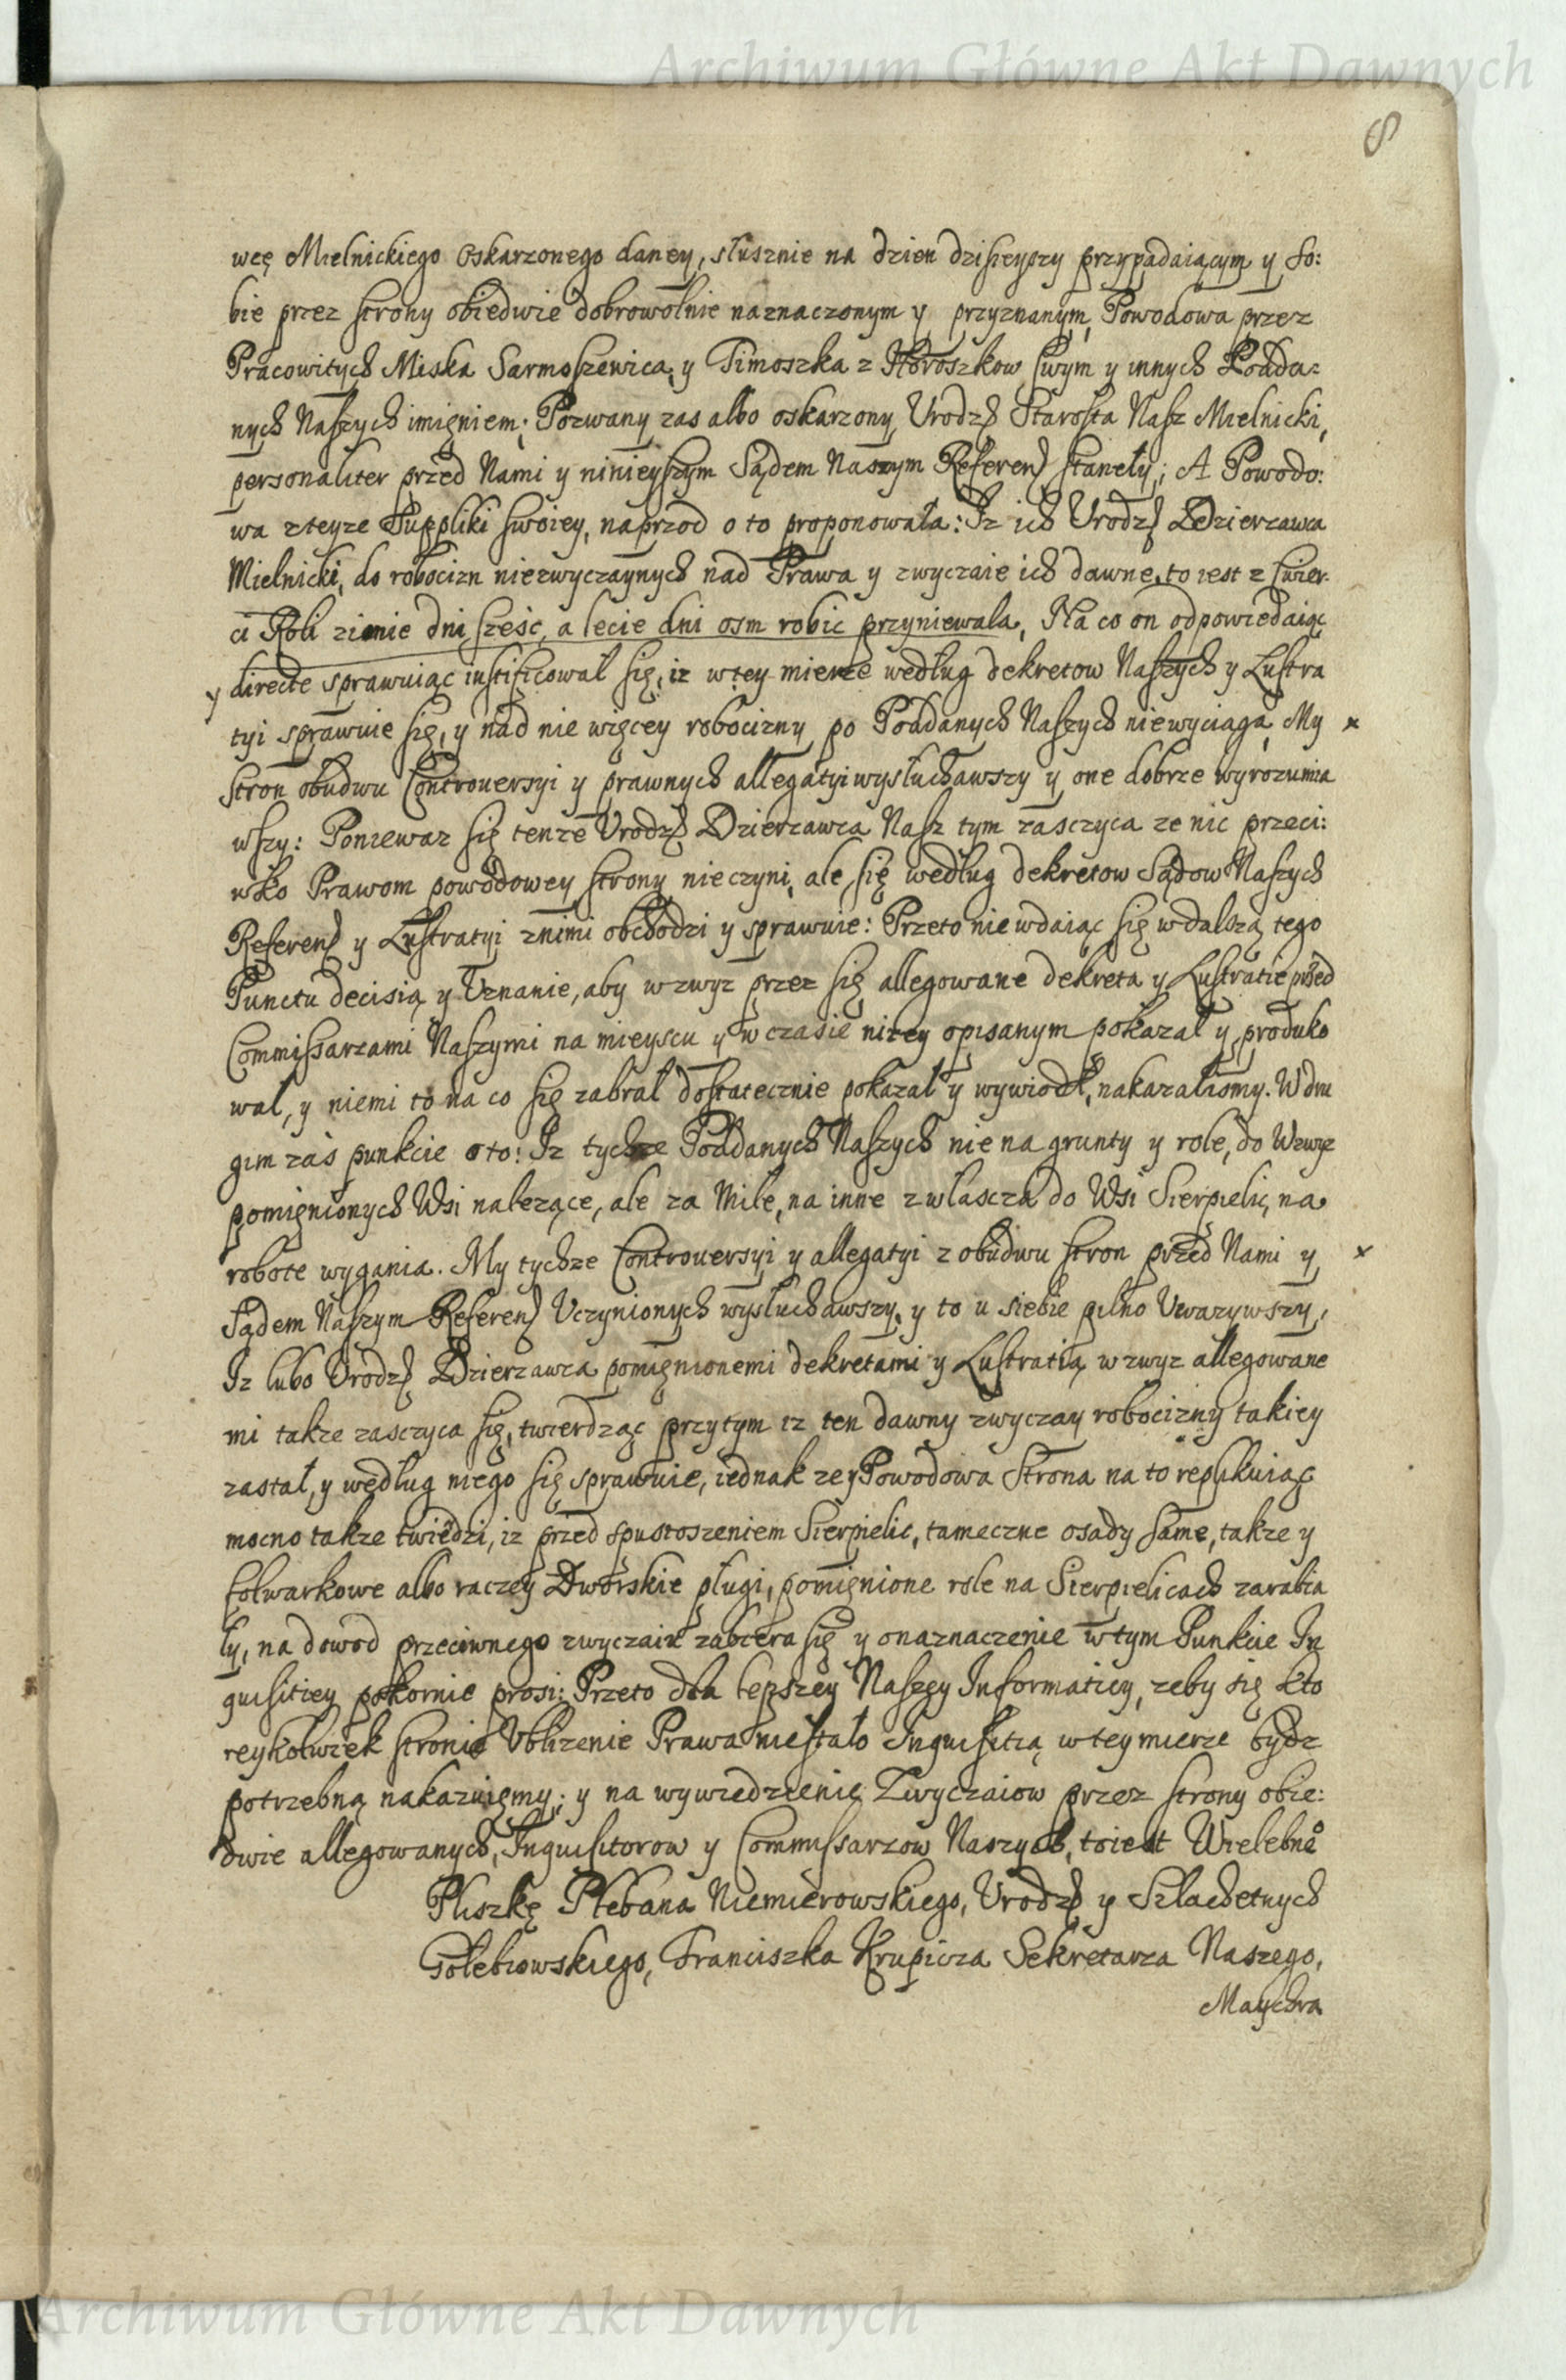 Archiwum Główne Akt Dawnych
8
wcę Mielnickiego Oskarzonego daney, słusznie na dzien dzisieyszy przypadaiącym y so:
bie przez strony obiedwie dobrowolnie naznaczonym y przyznanym, Powodowa przez
Pracowitych Miska Sarmoszewica, y Timoszka z Horoszkow, swym y innych Podda:
nych Naszych imięniem; Pozwany zas albo oskarzony, Urodzę Starosta Nasz Mielnicki,
personaliter przed Nami y ninieyszym Sądem Naszym Referen stanęły; A Powodo:
wa z teyze Suppliki swoiey, naprzod o to proponowała: Iz ich Urodz Dzierzawca
Mielnicki, do robocizn niezwyczaynych nad Prawa y zwyczaie ich dawne, to iest z cwier:
ci Roli zimie dni szesc, a lecie dni osm robic przyniewala, Na co on odpowiedaiąc
y directe sprawuiąc iustificował się, iz w tey mierze według dekretow Naszych y Lustra
tyi sprawuie się, y nad nie więcey robocizny po Poddanych Naszych niewyciąga, My x
stron obudwu Controuersyi y prawnych allegatyi wysłuchawszy y one dobrze wyrozumia
wszy: Poniewaz się tenze Urodz Dzierzawca Nasz tym zasczyca ze nic przeci:
wko Prawom powodowey strony nie czyni, ale się według dekretow Sądow Naszych
Referen y Lustratyi z nimi obchodzi y sprawuie: Przeto nie wdaiąc się w dalszą tego
Punctu decisią y Uznanie, aby wzwyz przez się allegowane dekreta y Lustratie przed
Commissarzami Naszymi na mieyscu y w czasie nizey opisanym pokazał y produko
wał, y niemi to na co się zabrał dostatecznie pokazał y wywiodł, nakazalismy. W dru
gim zas punkcie o to: Iz tychze Poddanych Naszych nie na grunty y role, do Wzwyz
pomięnionych Wsi nalezące, ale za Mile, na inne zwłascza do Wsi Sierpielic, na
robote wygania. My tychze Controuersyi y allegatyi z obudwu stron przed Nami y x
Sądem Naszym Referen Uczynionych wysłuchawszy, y to u siebie pilno Uwazywszy,
Iz lubo Urodz Dzierzawca pomięnionemi dekretami y Lustratią wzwyz allegowane
mi takze zasczyca się, twierdząc przytym iz ten dawny zwyczay robocizny takiey
zastał, y według niego się sprawuie, iednak ze y Powodowa Strona na to replikuiąc
mocno takze twierdzi, iz przed spustoszeniem Sierpielic, tameczne osady same, takze y
folwarkowe albo raczey Dworskie pługi, pomięnione role na Sierpielicach zarabia
ły, na dowod przeciwnego zwyczaiu zabiera się y o naznaczenie w tym Punkcie In
quisitiey pokornie prosi: Przeto dla lepszey Naszey Informatiey, zeby się kto
reykolwiek stronie Ublizenie Prawa niestało Inquisitią w tey mierze bydz
potrzebną nakazuięmy; y na wywiedzienie Zwyczaiow przez strony obie:
dwie allegowanych, Inquisitorow y Commissarzow Naszych, to iest Wielebne
Pliszkę Plebana Niemierowskiego, Urodz y Szlachetnych
Gołebiowskiego, Franciszka Krupicza Sekretarza Naszego,
Maychra
Archiwum Główne Akt Dawnych